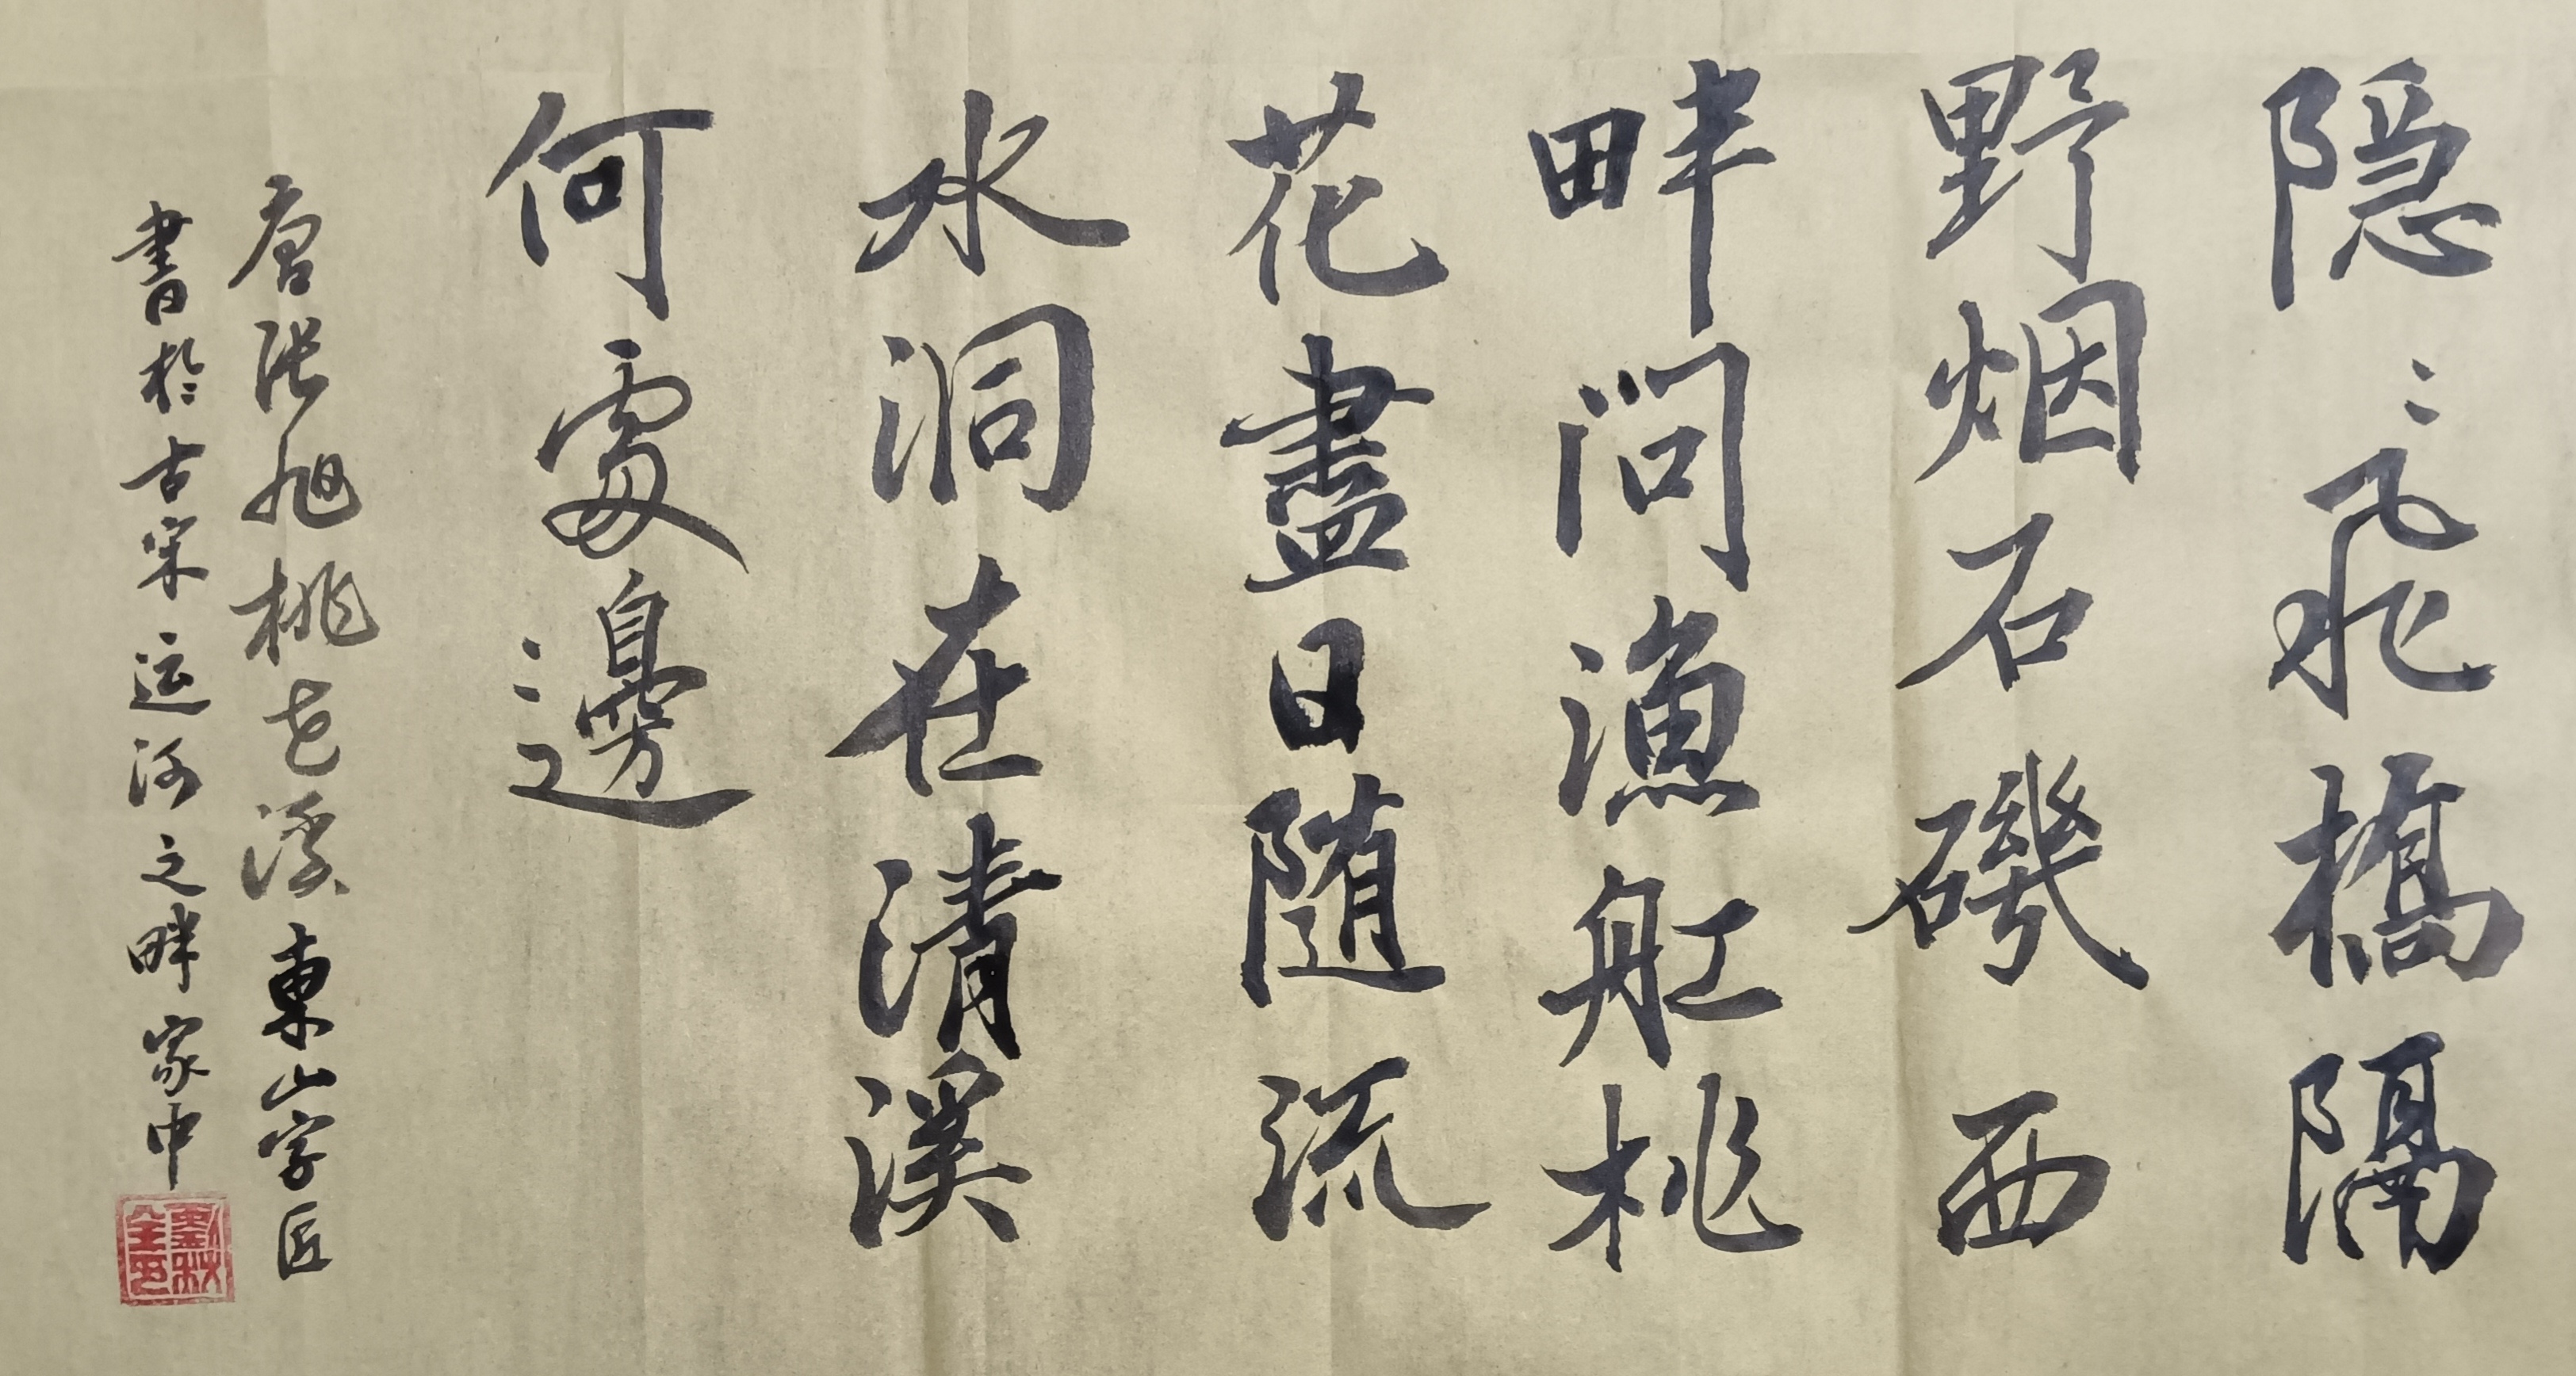 隐〻飛橋隔
野烟石磯西
畔问漁舡桃
花盡日随流
水洞在清溪
何處邊
唐張旭桃花溪 東山字匠
書於古宋运河之畔家中